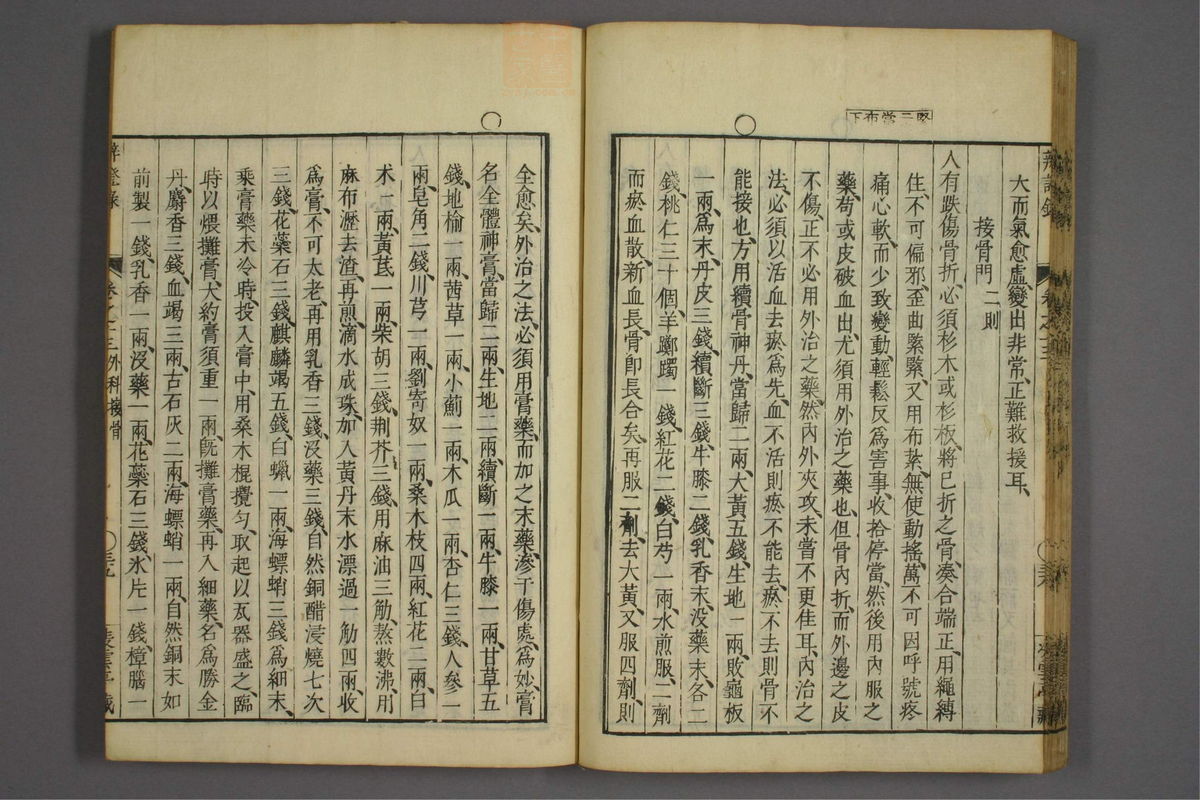 緊三當布下
大而氣愈虛變出非常、正難救援耳、
接骨門 二則
人有跌傷骨折、必須杉木或杉板、將已折之骨、湊合端正、用繩縛
住、不可偏邪、歪曲緊緊、又用布紮、無使動搖、萬不可因呼號疼
痛、心軟而少致變動、輕鬆反爲害事、收拾停當、然後用內服之
藥、苟或皮破血出、尤須用外治之藥也、但骨內折、而外邊之皮
不傷、正不必用外治之藥、然內外夾攻、未嘗不更佳耳、內治之
法、必須以活血去瘀爲先、血不活則瘀不能去、瘀不去則骨不
能接也、方用續骨神丹、當歸二兩、大黃五錢、生地一兩、敗龜板
一兩、爲末、丹皮三錢、續斷三錢、牛膝二錢、乳香末、沒藥末、各二
錢、桃仁三十個、羊躑躅一錢、紅花二錢、白芍一兩、水煎服、二劑
而瘀血散、新血長、骨卽長合矣、再服二劑、去大黃、又服四劑、則
全愈矣、外治之法、必須用膏藥、而加之末藥、滲于傷處、爲妙、膏
名全體神膏、當歸二兩、生地二兩、續斷一兩、牛膝一兩、甘草五
錢、地榆一兩、茜草一兩、小薊一兩、木瓜一兩、杏仁三錢、人參一
兩、皂角二錢、川芎一兩、劉寄奴一兩、桑木枝四兩、紅花二兩、白
朮一兩、黃芪一兩、柴胡三錢、荆芥三錢、用麻油三觔、熬數沸、用
麻布瀝去渣、再煎滴水成珠、加入黃丹末水漂過一觔四兩、收
爲膏、不可太老、再用乳香三錢、沒藥三錢、自然銅醋浸燒七次
三錢、花蕊石三錢、麒麟竭五錢、白蠟一兩、海螵蛸三錢、爲細末、
乘膏藥未冷時、投入膏中、用桑木棍攪勻、取起以瓦器盛之、臨
時以煨攤膏、大約膏須重一兩、旣攤膏藥、再入細藥、名爲勝金
丹、麝香三錢、血竭三兩、古石灰二兩、海螵蛸一兩、自然銅末如
前製一錢、乳香一兩、沒藥一兩、花蕊石三錢、氷片一錢、樟腦一
卷之十三 外科 接骨